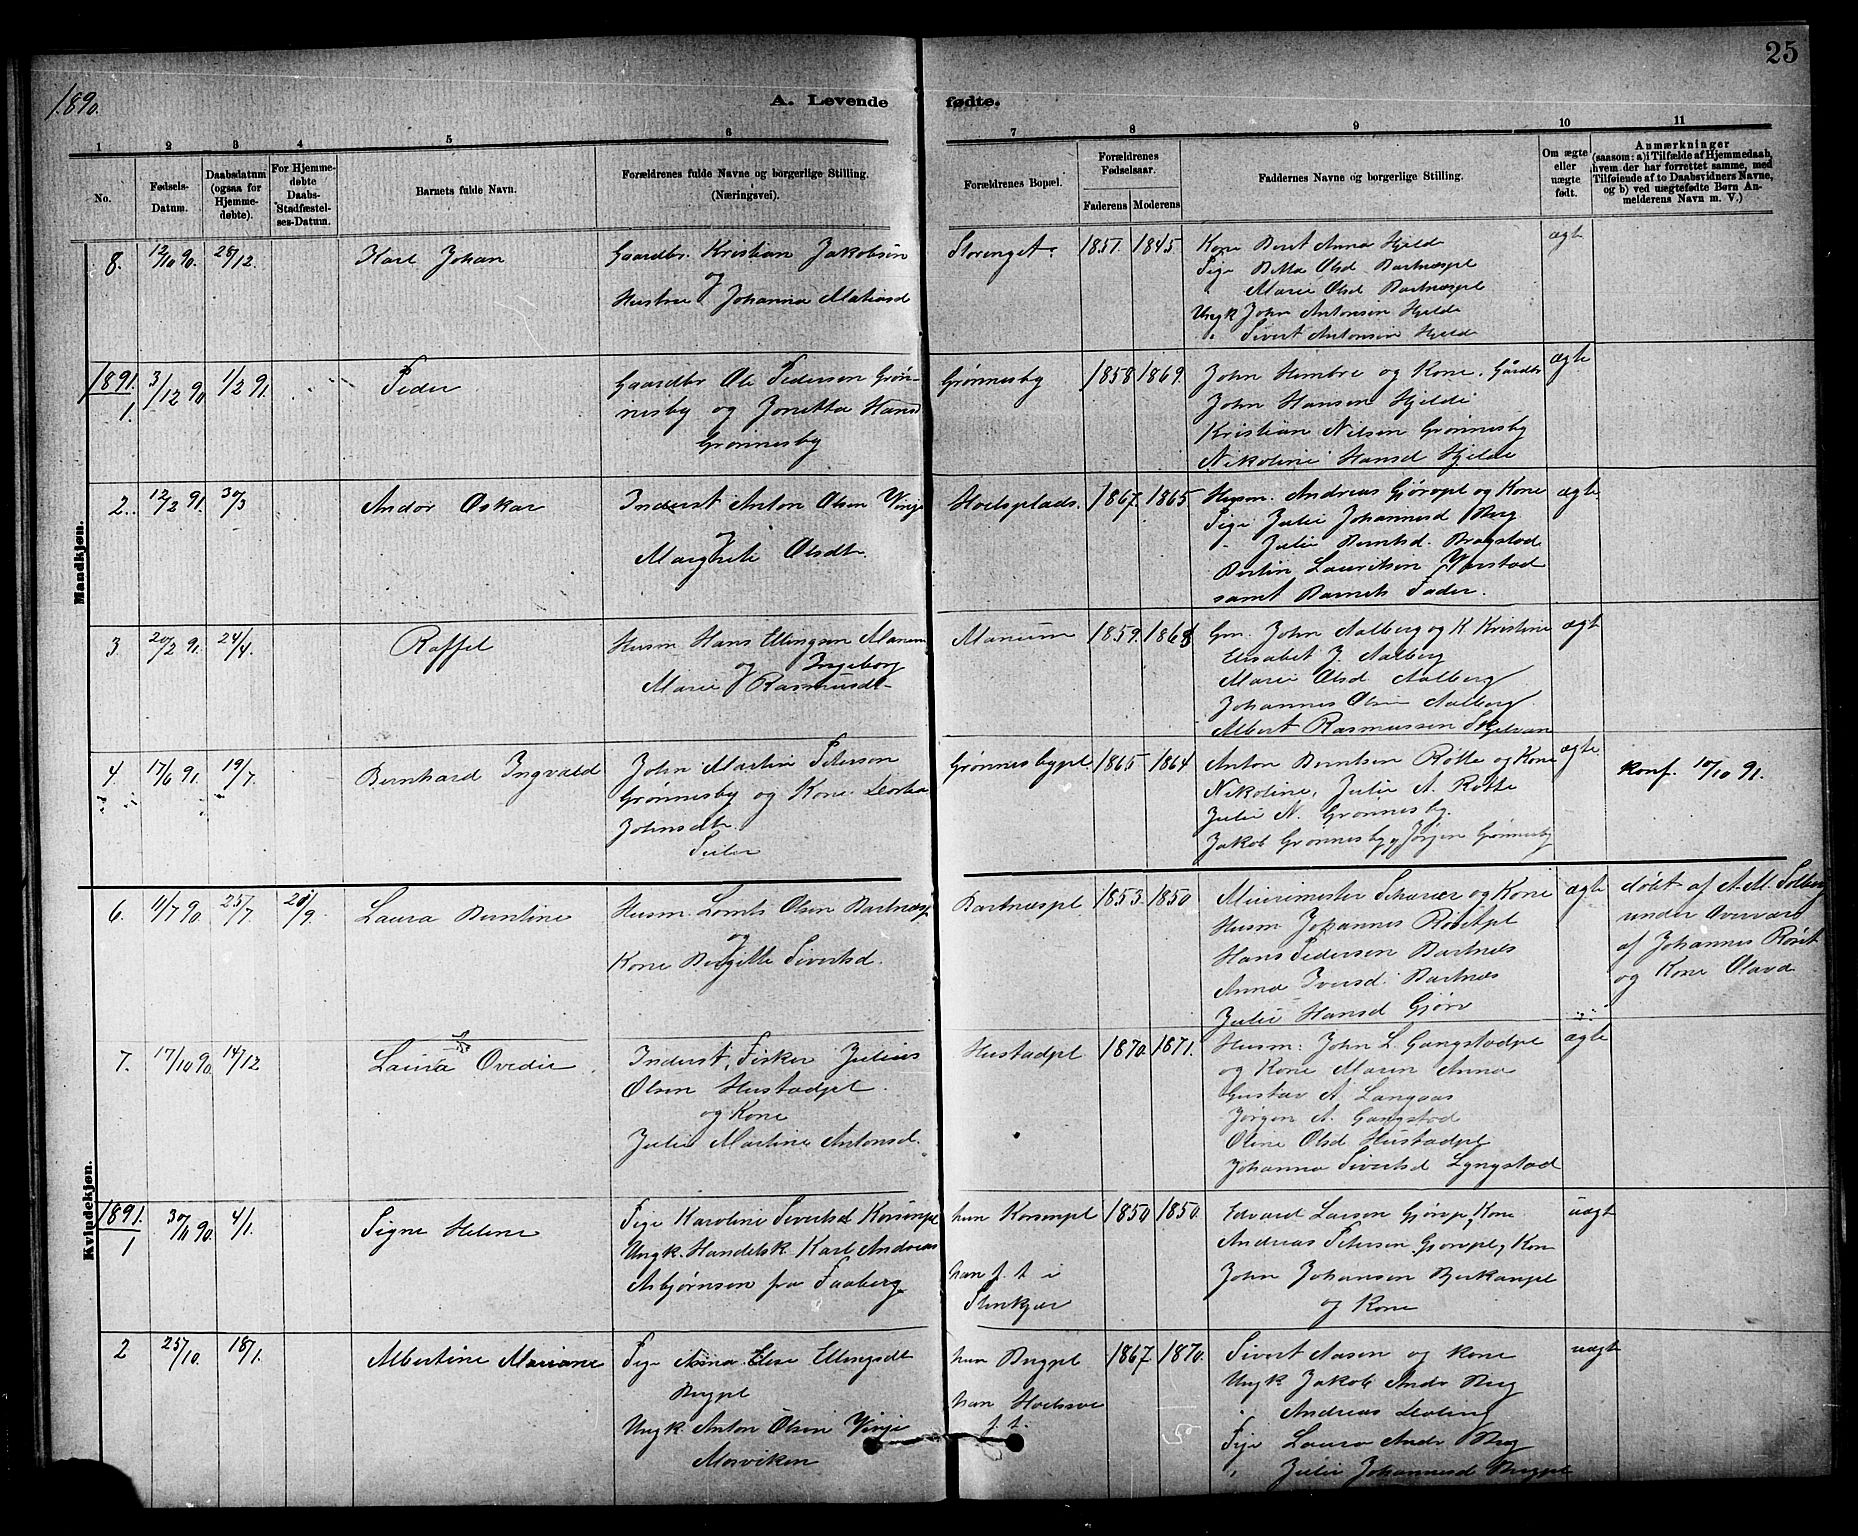 25
1890.
A. Levende fødte.
1 2 3 4 5 6 7 8 9 10 11
No.
Fødsels-Datum.
Daabsdatum (ogsaa for Hjemmedøbte).
For Hjemmedøbte Daabs-Stadfæstelses-Datum.
Barnets fulde Navn.
Forældrenes fulde Navne og borgerlige Stilling. (Næringsvei).
Forældrenes Bopæl.
Forældrenes Fødselsaar.
Faderens Moderens
Faddernes Navne og borgerlige Stilling.
Om ægte eller uægte født.
Anmærkninger
(saasom: a) i Tilfælde af Hjemmedaab, hvem der har forrettet samme, med Tilføiende af to Daabsvidners Navne, og b) ved uægtefødte Børn Anmelderens Navn m. V.)
Mandkjøn.
8. 12/10 90. 28/12. Karl Johan
Gaardbr. Kristian Jakobsen
og
Hustru Johanna Matiasd
Storenget. 1851. 1845
Kone Berit Anna Hjelde
Pige Bitta Olsd Bartnæspl
Marie Olsd Bartnæspl
Ungk John Antonsen Hjelde
" Sivert Antonsen Hjelde
ægt
1891.
1. 3/12 90 1/2 91. Peder
Gaardbr Ole Pedersen Grøn-
nesby og Jonetta Hansd
Grønnesby
Grønnesby 1858 1869.
John Himbre og Kone, Gårdbr
John Hansen Hjelde
Kristian Nilsen Grønnesby
Nikoline Hansd Hjelde
ægte
2. 12/2 91. 30/3 Andor Oskar
Inderst Anton Olsen Vinje
og
Margrete Olsdt.
Hoelsplads. 1867. 1865
Husm. Andreas Gjørvpl og Kone
Pige Julie Johannesd Berg
" Julie Berntsd. Bragstad
Lauritsen
samt Barnets Fader.
ægte
3 20/2 91. 24/4. Roffel
Husm Hans Ellingsen Manum
og Ingeborg
Marie Rasmusdt
Manum 1859. 1868
Gm. John Aalberg og K. Kristine
Elisabet J. Aalberg
Marie Olsd Aalberg
Johannes Olsen Aalberg
Albert Rasmussen Skjelvan
ægt
4. 17/6 91. 19/7. Bernhard Ingvald
John Martin Peterson
Grønnesby og Kone Dortea
Johnsdt.
Seiler
Grønnesbypl 1865 1864
Anton Berntsen Røtte og Kone
Nikoline, Julie A. Røtte
Julie N. Grønnesby.
Jakob Grønnesby, Jørgen Grønnesby
ægte
konf. 10/10 91.
Kvindekjøn.
6. 11/7 90. 25/7 28/9. Laura Berntine
Husm Lornts Olsen Bartnæspl
og
Kone Birgitte Sivertsd.
Bartnæspl. 1853. 1850
Muurmester Scherer og Kone
Husm Johannes Røsetpl
Hans Pedersen Bartnæs
Anna Iversd. Bartnæs
Julie Hansd Gjørv
ægte
døbt af A. M. Solberg
under Overvær
af Johannes Røset
og Kone Olava
7. 17/10 90. 14/12 Laura Ovedie
Inderst, Fisker Julius
Olsen Hustadpl.
og Kone
Julie Martine Antonsd.
Hustadpl 1870. 1871.
Husm: John L. Gangstadpl
og Kone Maren Anna
Gustav A. Langaas
Jørgen A. Gangstad
Oline Olsd Hustadpl
Johanna Sivertsd Lyngstad
ægte
1891.
1 30/11 90. 4/1. Signe Helene
Pige Karoline Sivertsd Korsenpl
Ungk. Handelsk. Karl Andreas
Asbjørnsen fra Faaberg
hun Korsenpl 1850 1850.
han f. t. i
Stenkjær
Edvard Larsen Gjørvpl, Kone
Andreas Petersen Gjørvpl, Kone
John Johansen Birkanpl
og Kone
uægt
2 25/10. 18/1. Albertine Mariane
Pige Anna Else Ellingsdt
Bergpl
Ungk. Anton Olsen Vinje
Mosviken
hun Bergpl 1867. 1870.
han
f. t.
Sivert Aasen og Kone
Ungk Jakob Andr Berg
" Andreas
Pige Laura Andr Berg
" Julie Johannesd Bergpl
uægt